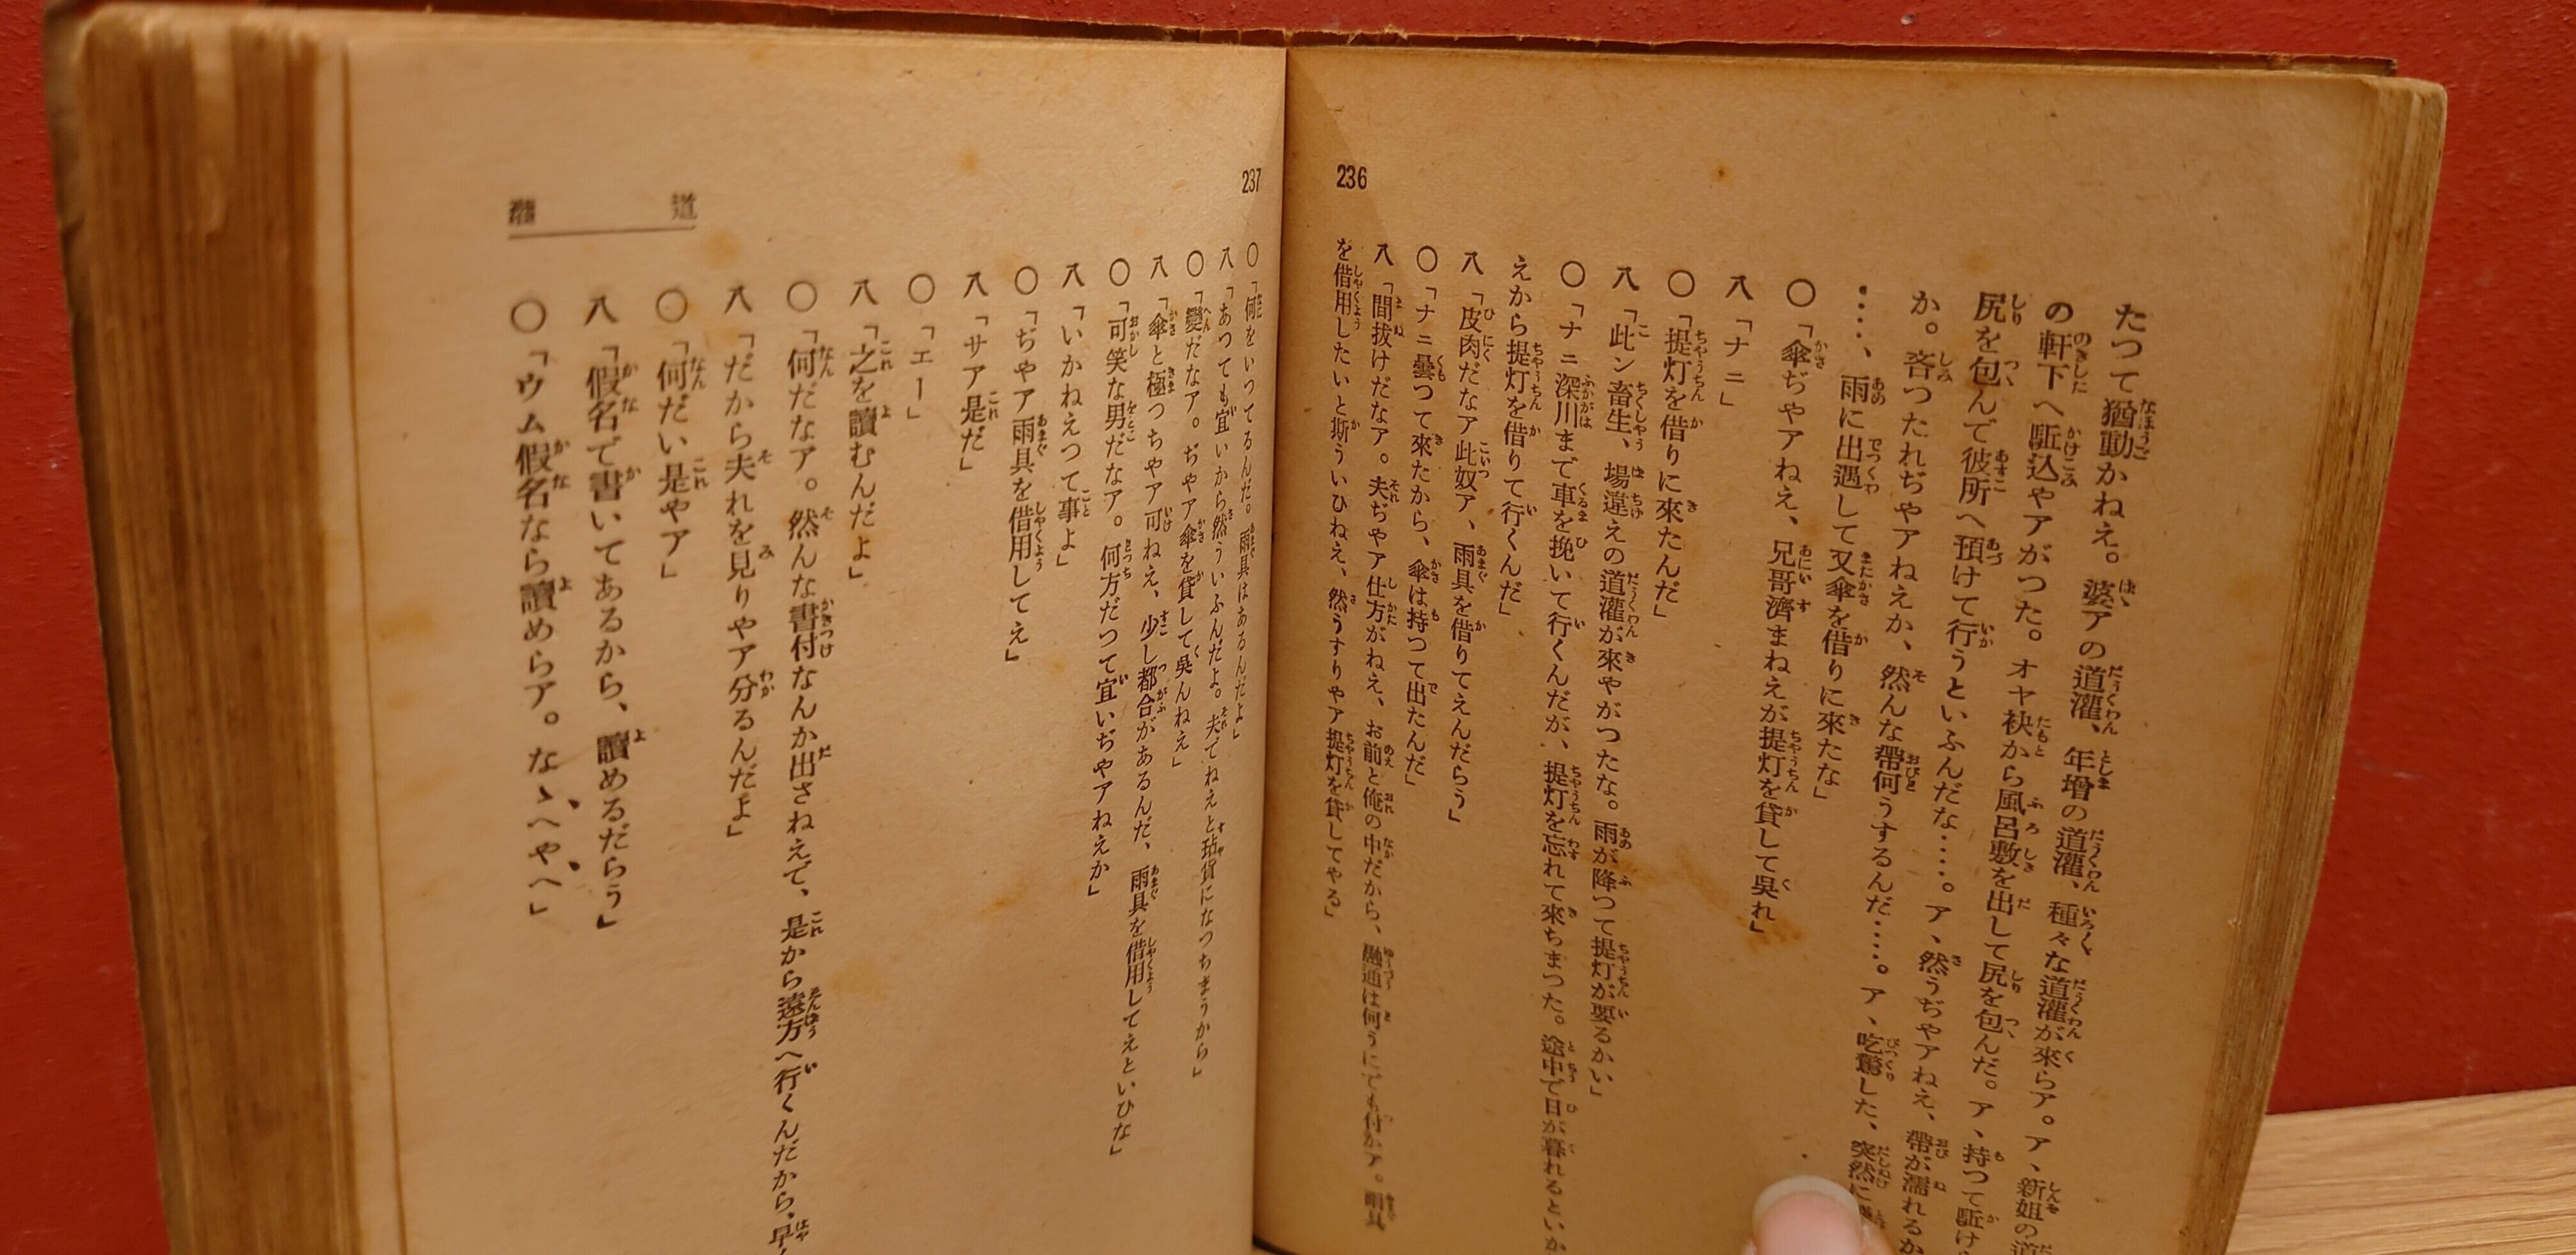 236
たつて猶動かねえ。婆アの道灌、年增の道灌、種々な道灌が來らア。ア、新姐の道
の軒下へ駈込やアがつた。オヤ袂から風呂敷を出して尻を包んだ。ア、持つて駈け
尻を包んで彼所へ預けて行うといふんだな‥‥。ア、然うぢやアねえ、帶が濡れるか
か。吝つたれぢやアねえか、然んな帶何うするんだ‥‥。ア、吃驚した、突然に
‥‥、雨に出遇して又傘を借りに來たな」
〇「傘ぢやアねえ、兄哥濟まねえが提灯を貸して吳れ」
八「ナニ」
〇「提灯を借りに來たんだ」
八「此ン畜生、場違えの道灌が來やがつたな。雨が降つて提灯が要るかい」
〇「ナニ深川まで車を挽いて行くんだが、提灯を忘れて來ちまつた。途中で日が暮れるといか
えから提灯を借りて行くんだ」
八「皮肉だなア此奴ア、雨具を借りてえんだらう」
〇「ナニ曇つて來たから、傘は持つて出たんだ」
八「間拔けだなア。夫ぢやア仕方がねえ、お前と俺の中だから、融通は何うにでも付かア。雨具
を借用したいと斯ういひねえ、然うすりやア提灯を貸してやる」
237
道灌
〇「何をいつてるんだ。雨具はあるんだよ」
八「あつても宜いから然ういふんだよ。夫でねえと玷貸になつちまうから」
〇「變だなア。ぢやア傘を貸して吳んねえ」
八「傘と極つちやア可ねえ、少し都合があるんだ、雨具を借用してえといひな」
〇「可笑な男だなア。何方だつて宜いぢやアねえか」
八「いかねえつて事よ」
〇「ぢやア雨具を借用してえ」
八「サア是だ」
〇「エー」
八「之を讀むんだよ」
〇「何だなア。然んな書付なんか出さねえで、是から遠方へ行くんだから、早
八「だから夫れを見りやア分るんだよ」
〇「何だい是やア」
八「假名で書いてあるから、讀めるだらう」
〇「ウム假名なら讀めらア。なゝへやへ」